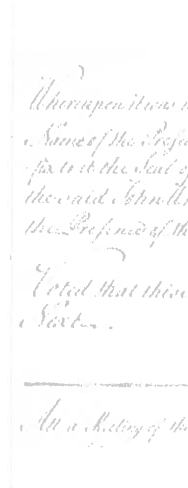 Whereupon it was
Name of the
fix to it the Seal of
the said John
the Presence of th
Voted that this
Next.
At a Meeting of the